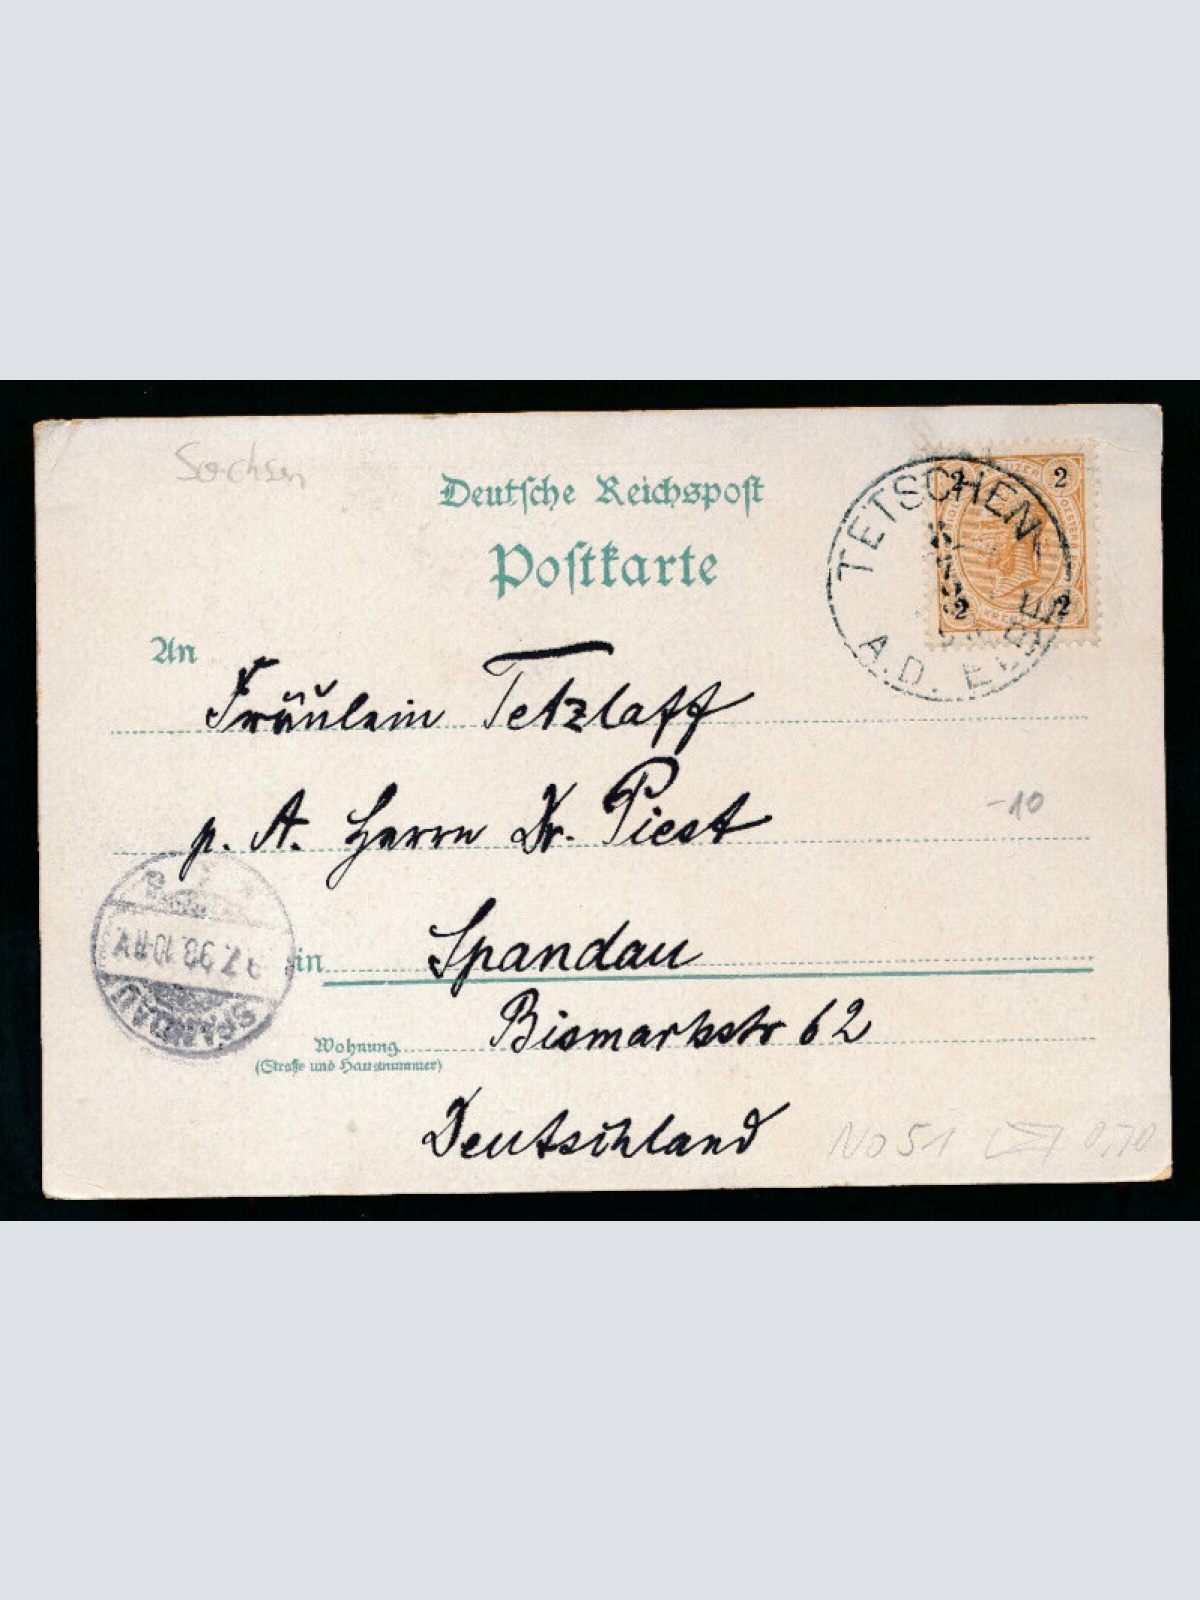 Sachsen
Deutsche Reichspost
Postkarte
TETSCHEN
A.D. ELBE
2 2
2 2
An
Fräulein Tetzlaff
p. A. Herrn Dr. Piest
-10
in Spandau
7.98.10-11V.
SPANDAU
Wohnung Bismarkstr 62
(Straße und Hausnummer)
Deutschland
No 51 0,70